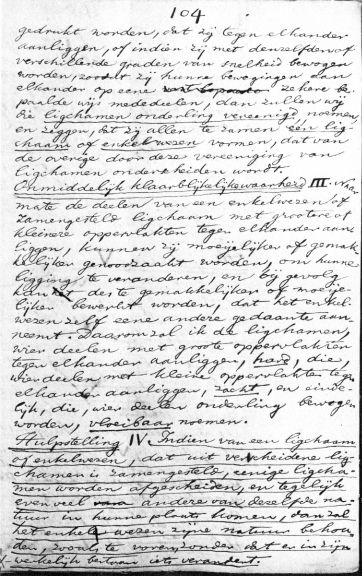 104
gedrukt worden, dat zij tegen elkander
aanliggen, of indien zij met denzelfden of
verschillende graden van snelheid bewogen
worden, zoodat zij hunne bewegingen aan
elkander op eene zekere be-
paalde wijs mededeelen, dan zullen wij
die ligchamen onderling vereenigd noemen,
en zeggen, dat zij allen te zamen een lig-
chaam of enkelwezen vormen, dat van
de overige door deze vereeniging van
ligchamen onderscheiden wordt.
Onmiddelijk klaarblijkelijke waarheid III. Naar
mate de deelen van een enkelwezen of
zamengesteld ligchaam met grootere of
kleinere oppervlakten tegen elkander aan
liggen, kunnen zij moeijelijker of gemak-
kelijker genoodzaakt worden, om hunne
ligging te veranderen, en bij gevolg
kan des te gemakkelijker of moeije-
lijker bewerkt worden, dat het enkel-
wezen zelf eene andere gedaante aan
neemt. Daarom zal ik de ligchamen,
wier deelen met groote oppervlakten
tegen elkander aanliggen, hard, die,
wier deelen met kleine oppervlakten tegen
elkander aanliggen, zacht, en einde-
lijk, die, wier deelen onderling bewogen
worden, vloeibaar noemen.
Hulpstelling IV. Indien van een ligchaam
of enkelwezen, dat uit verscheidene lig-
chamen is zamengesteld, eenige ligcha-
men worden afgescheiden, en tegelijk
evenveel andere van dezelfde na-
tuur in hunne plaats komen, dan zal
het enkelwezen zijne natuur behou-
den, zooals te voren, zonder dat er in zijn
werkelijk bestaan iets verandert.